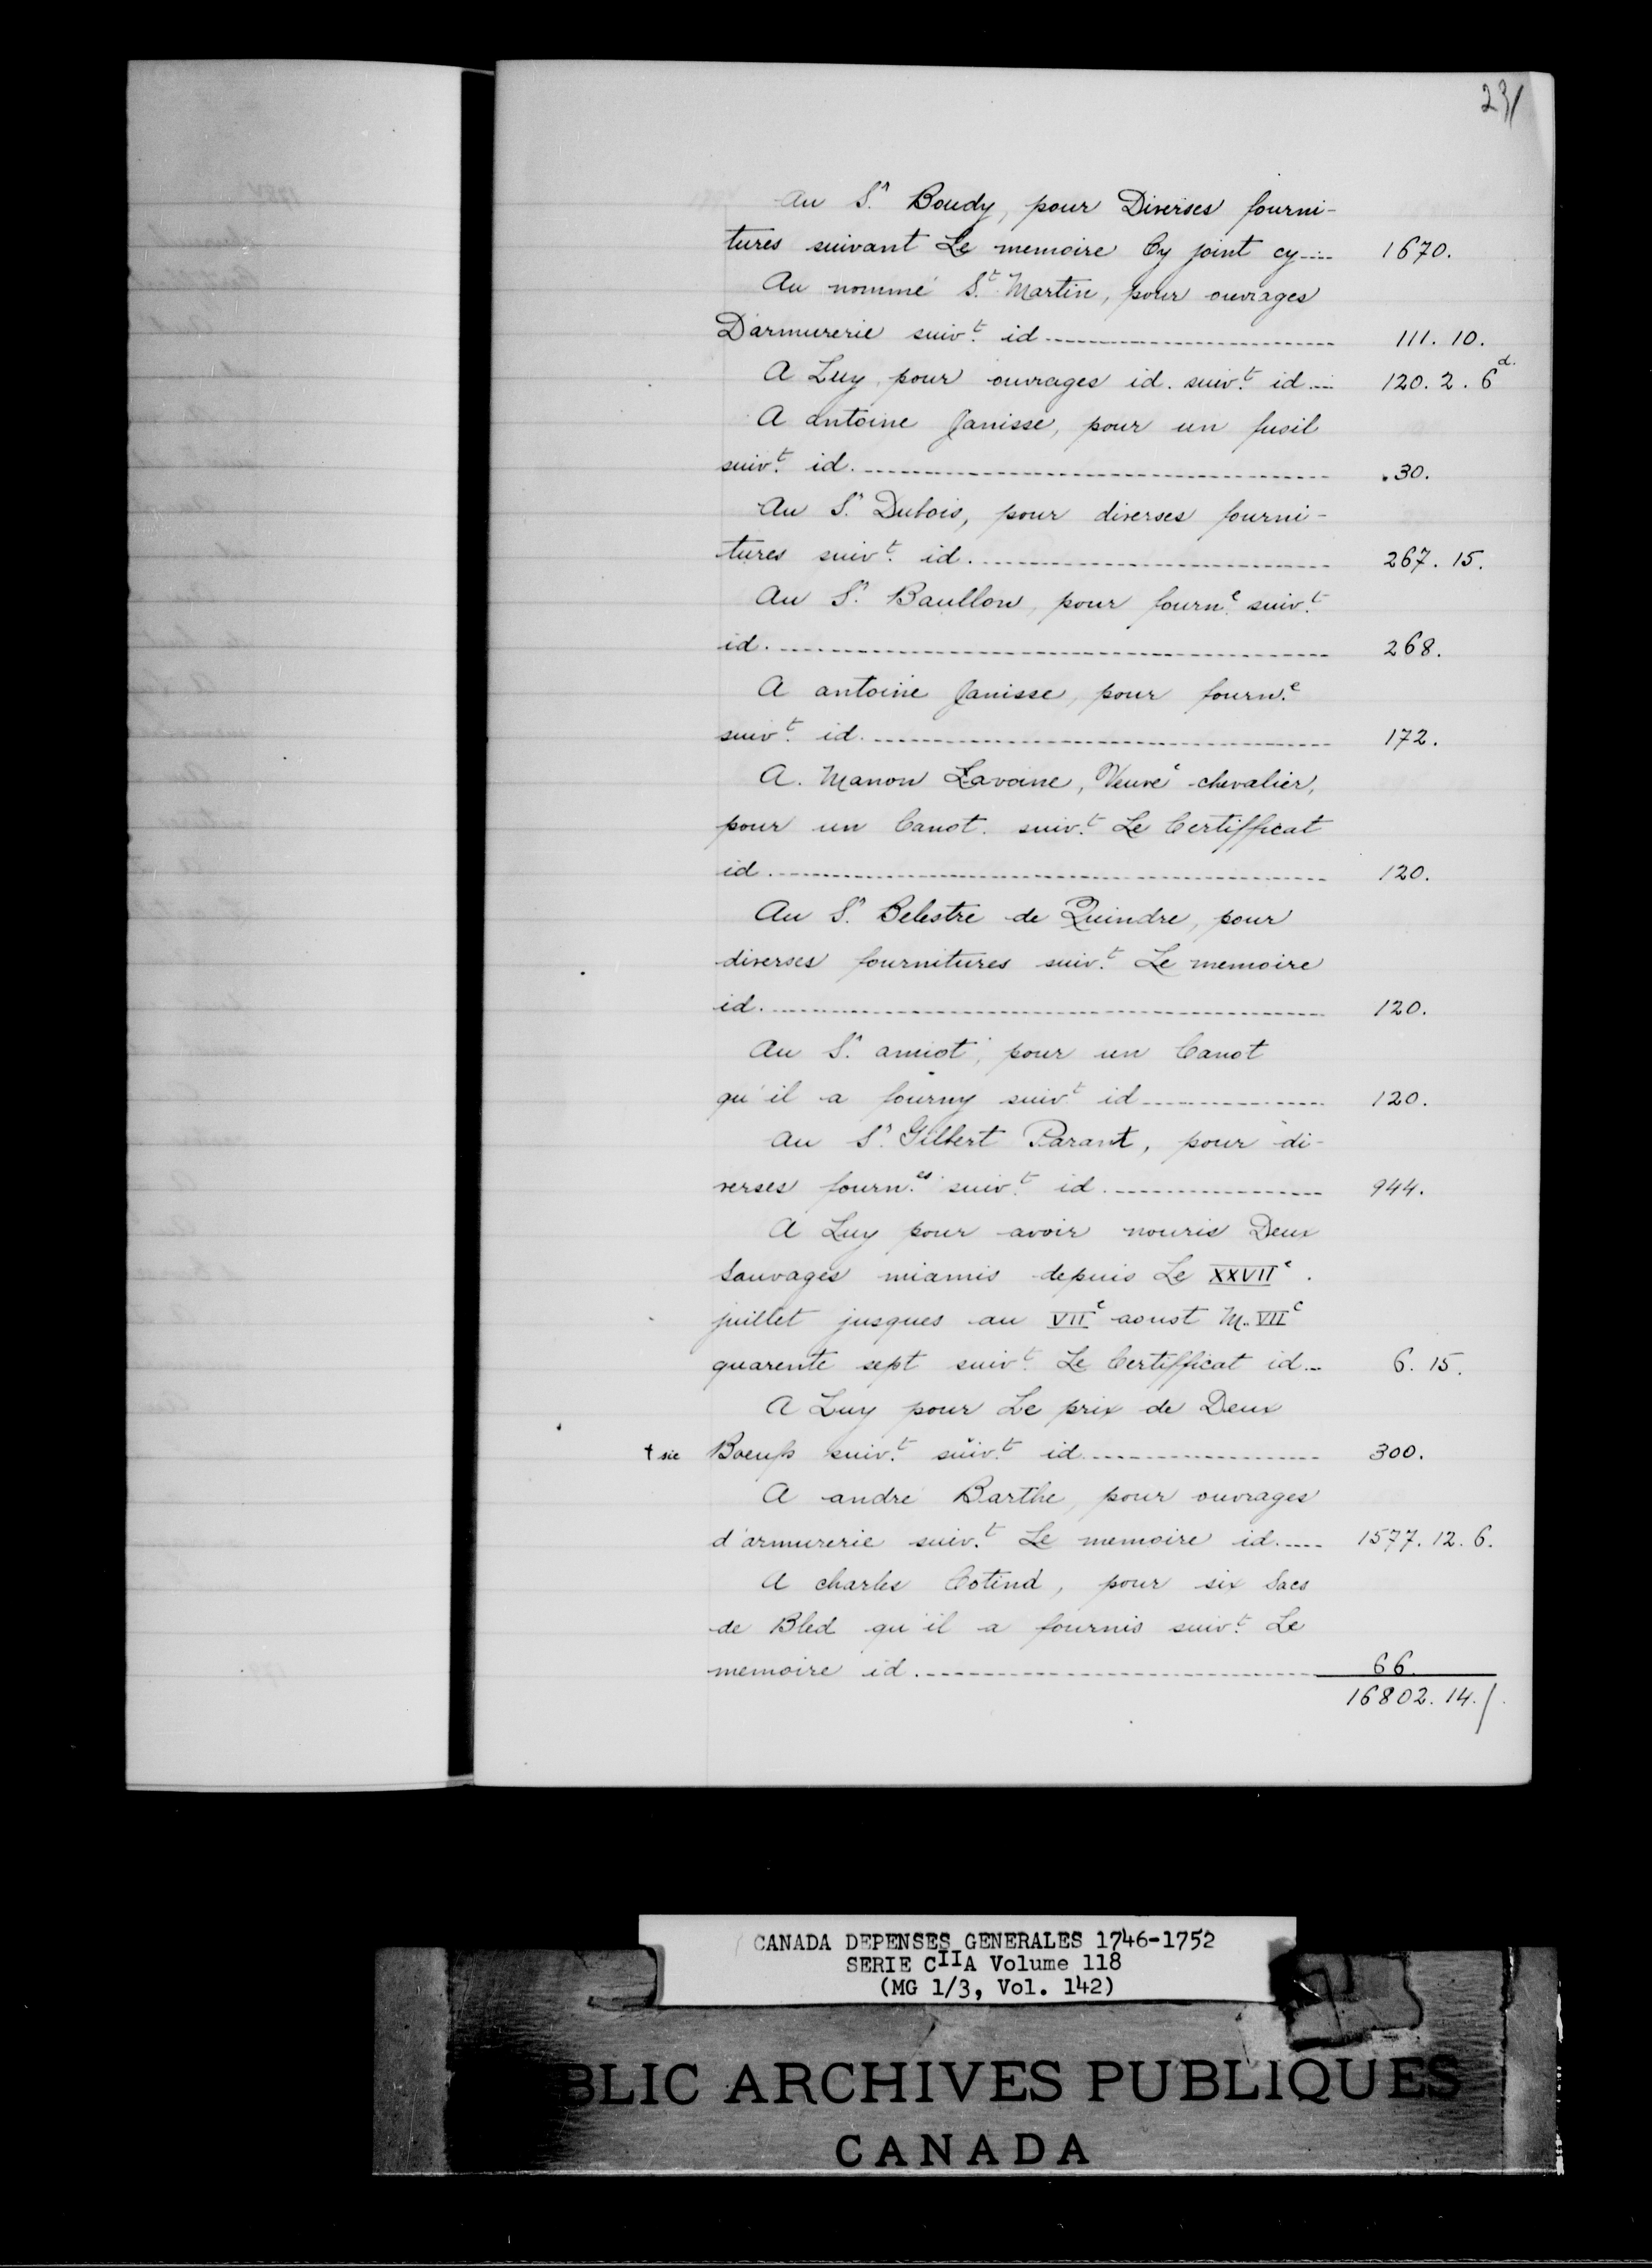 231
Au S.r Boudy, pour Diverses fourni-
tures suivant Le memoire Cy joint cy..... 1670.
Au nommé S.t Martin, pour ouvrages
D'armurerie suiv.t id.................... 111. 10.
A Luy, pour ouvrages id. suiv.t id.... 120. 2. 6 d.
A antoine Janisse, pour un fusil
suiv.t id.................... 30.
Au S.r Dubois, pour diverses fourni-
tures suiv.t id.................... 267. 15.
Au S.r Baullon, pour fourn.e suiv.t
id.................... 268.
A antoine Janisse, pour fourn.e
suiv.t id.................... 172.
A. Manon Lavoine, Veuve chevalier,
pour un Canot. suiv.t Le Certifficat
id.................... 120.
Au S.r Belestre de Quindre, pour
diverses fournitures suiv.t Le memoire
id.................... 120.
Au S.r amiot, pour un Canot
qu'il a fourny suiv.t id.................... 120.
Au S.r Gilbert Parant, pour di-
verses fourn.es suiv.t id.................... 944.
A Luy pour avoir nouris Deux
Sauvages miamis depuis Le XXVII e.
juillet jusques au VII e aoust M.. VII c
quarente sept suiv.t Le Certifficat id... 6. 15.
A Luy pour Le prix de Deux
† sic Boeufs suiv.t suiv.t id.................... 300.
A andré Barthe, pour ouvrages
d'armurerie suiv.t Le memoire id...... 1577. 12. 6.
A charles Cotind, pour six Sacs
de Bled qu'il a fournis suiv.t Le
memoire id.................... 66.
16802. 14. /.
CANADA DEPENSES GENERALES 1746-1752
SERIE CIIA Volume 118
(MG 1/3, Vol. 142)
BLIC ARCHIVES PUBLIQUES
CANADA